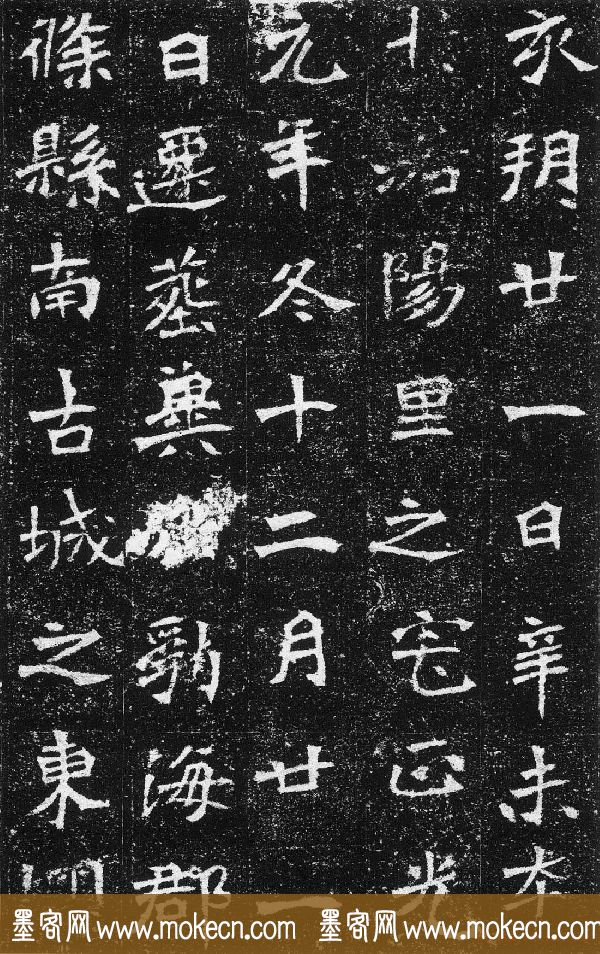 亥朔廿一日辛未卒
洛陽里之宅正光
元年冬十二月廿一
日遷葬冀勃海郡
條縣南古城之東
墨客网 www.mokecn.com 墨客网 www.mokecn.com